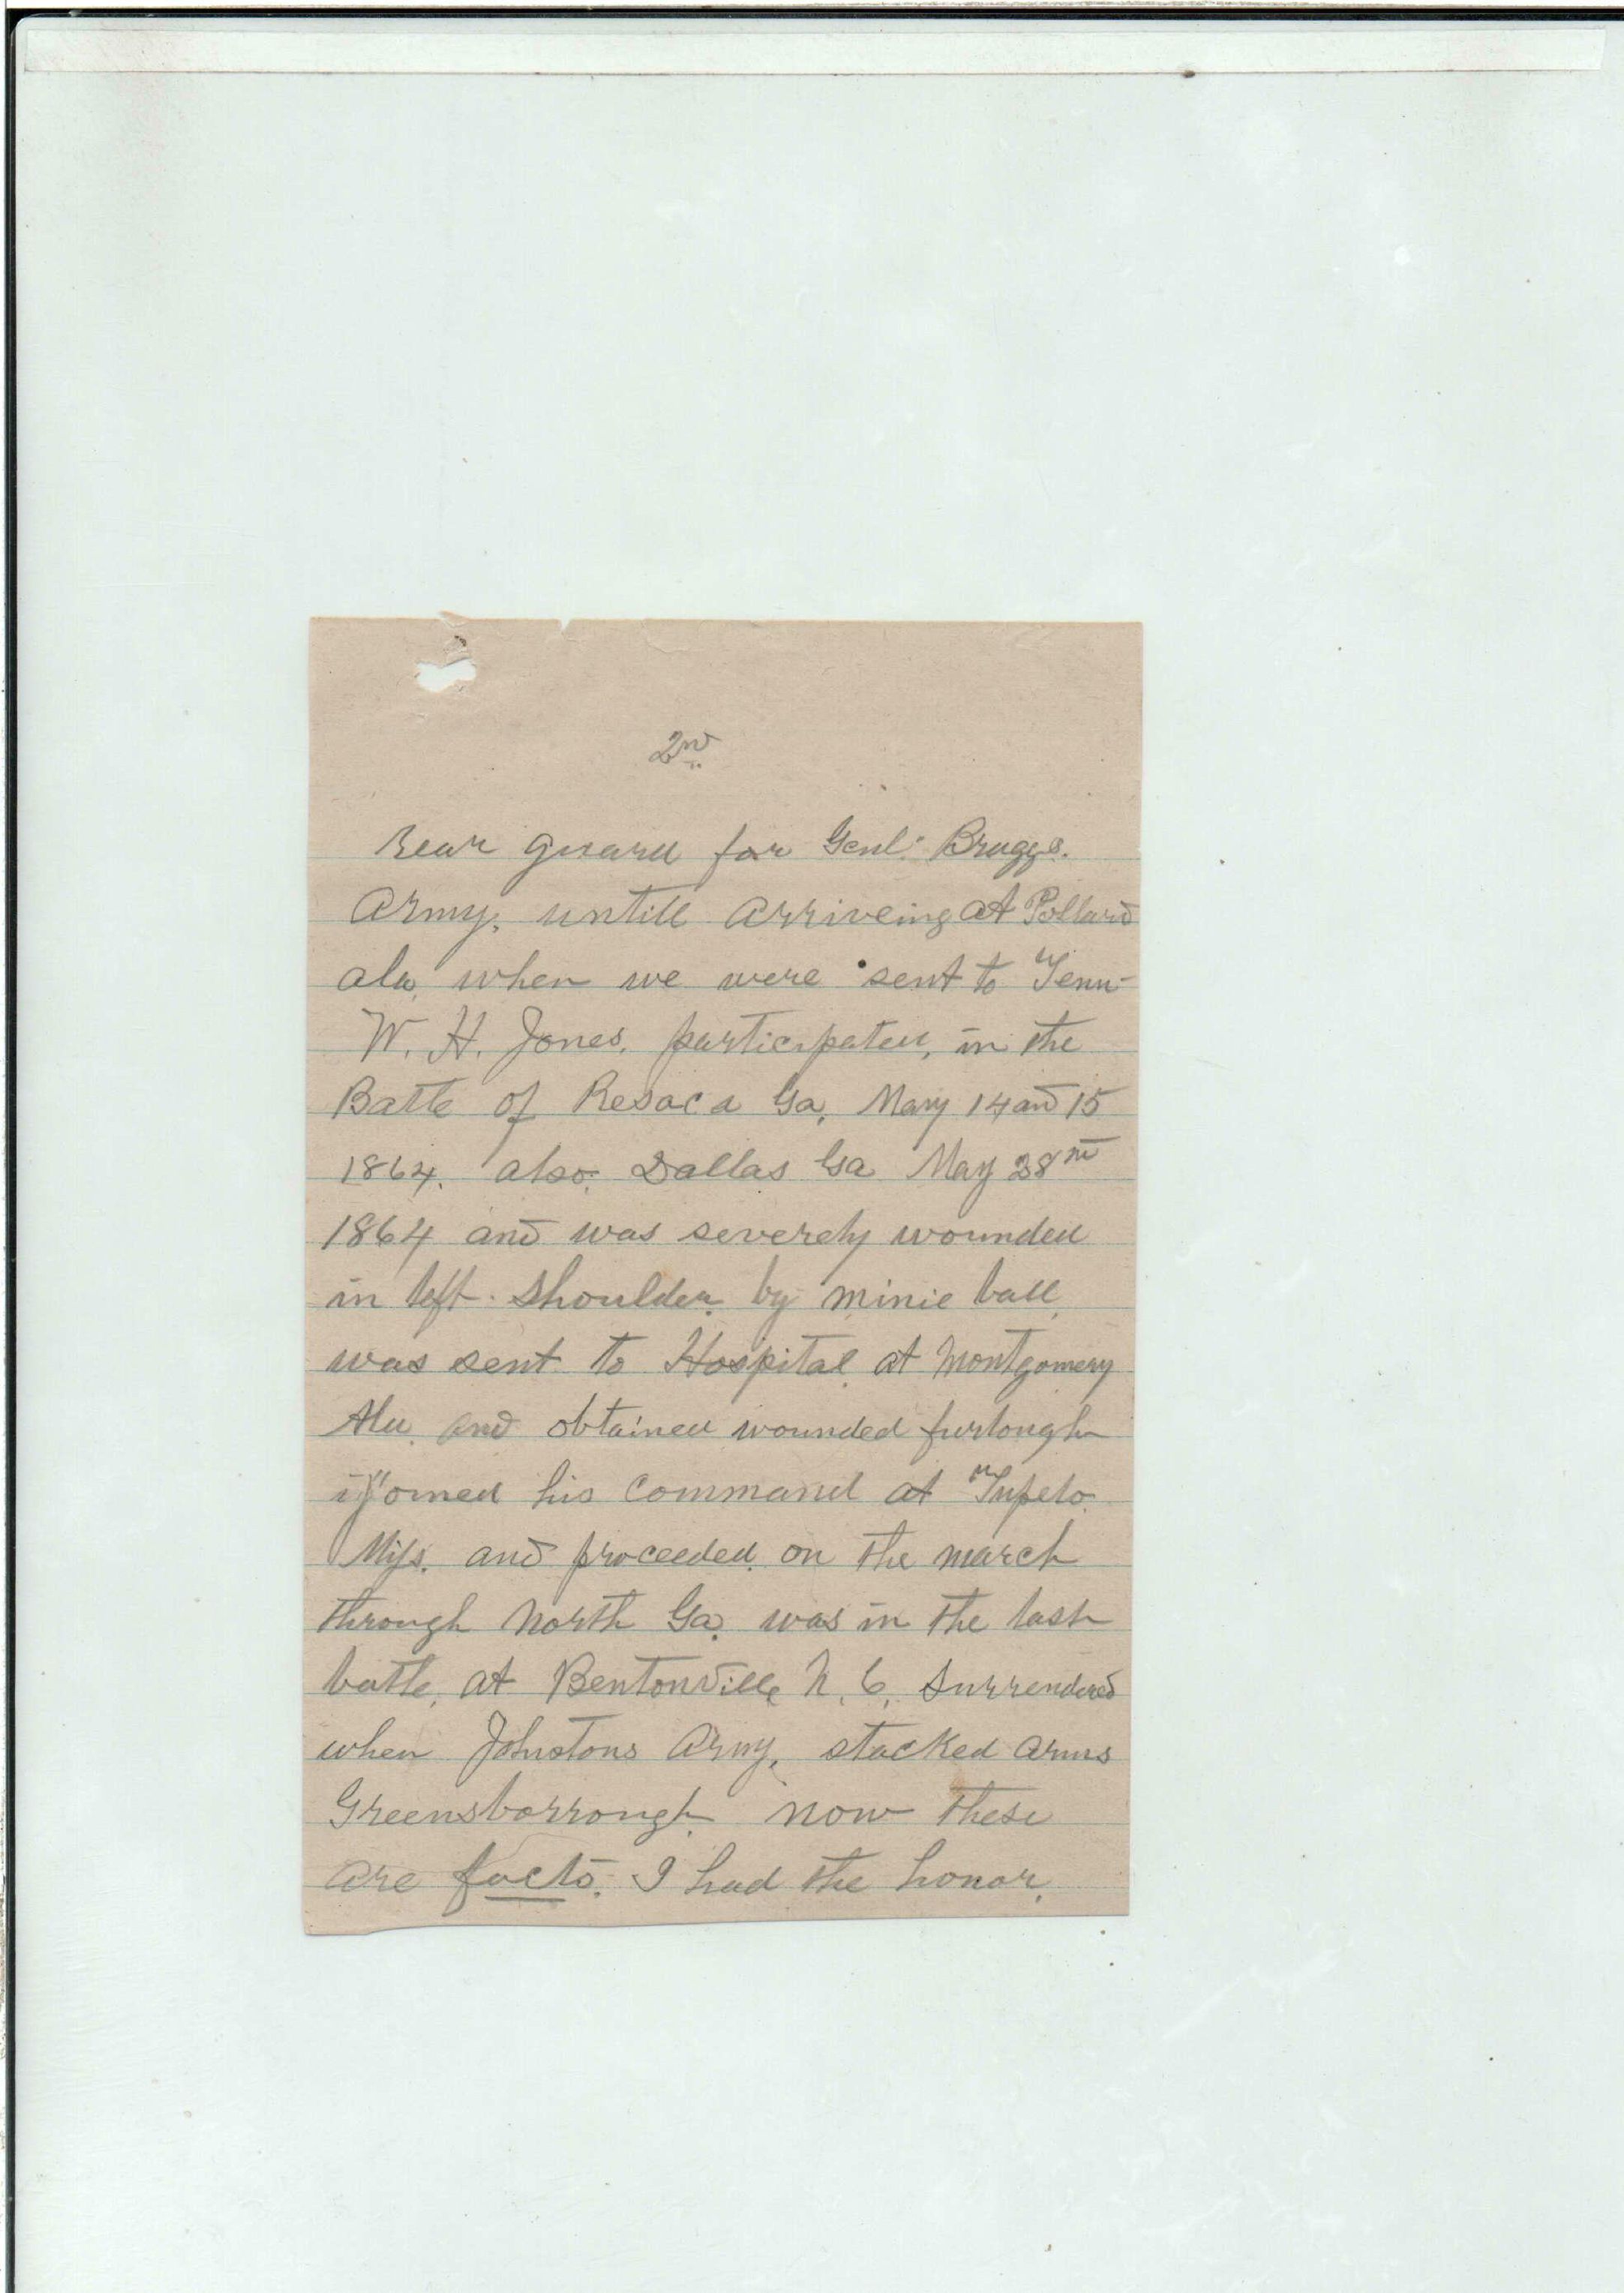 2nd
Rear guard for Genl. Braggs.
Army, untill arriveing at Pollard
ala, when we were sent to Tenn-
W. H. Jones. participated, in the
Batle of Resaca Ga. May 14 and 15
1864. also. Dallas Ga May 28th
1864 and was severely wounded
in left shoulder by minie ball
was sent to Hospital at Montgomery
Ala. and obtained wounded furlough
joined his Command at Tupelo.
Miss. and proceeded on the march
through North Ga. was in the last
batle, at Bentonville N. C. Surrendered
when Johnstons Army, stacked arms
Greensborrough. now these
are facts. I had the honor.